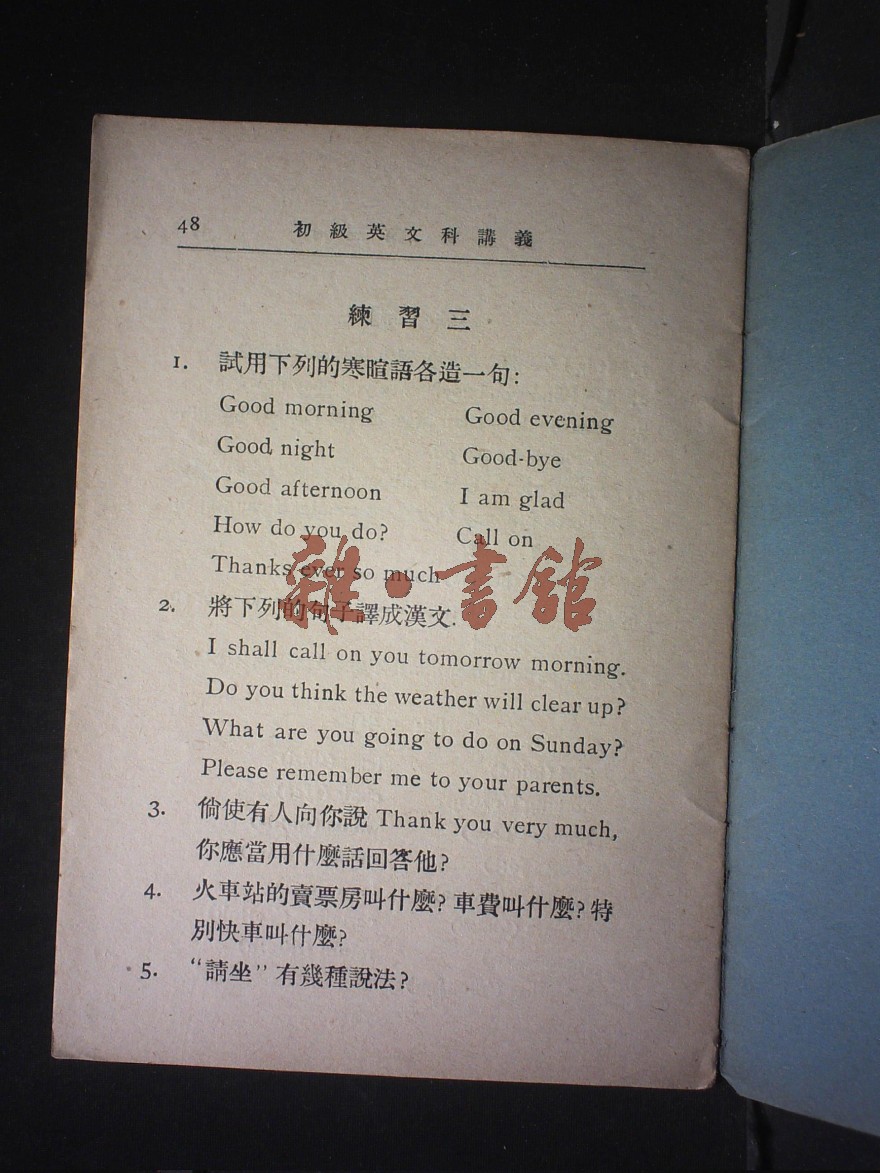 48 初級英文科講義
練習三
1. 試用下列的寒暄語各造一句:
Good morning Good evening
Good night Good-bye
Good afternoon I am glad
How do you do? Call on
Thanks ever so much
雜·書館
2. 將下列的句子譯成漢文.
I shall call on you tomorrow morning.
Do you think the weather will clear up?
What are you going to do on Sunday?
Please remember me to your parents.
3. 倘使有人向你說 Thank you very much,
你應當用什麼話回答他?
4. 火車站的賣票房叫什麼? 車費叫什麼? 特
別快車叫什麼?
5. “請坐” 有幾種說法?